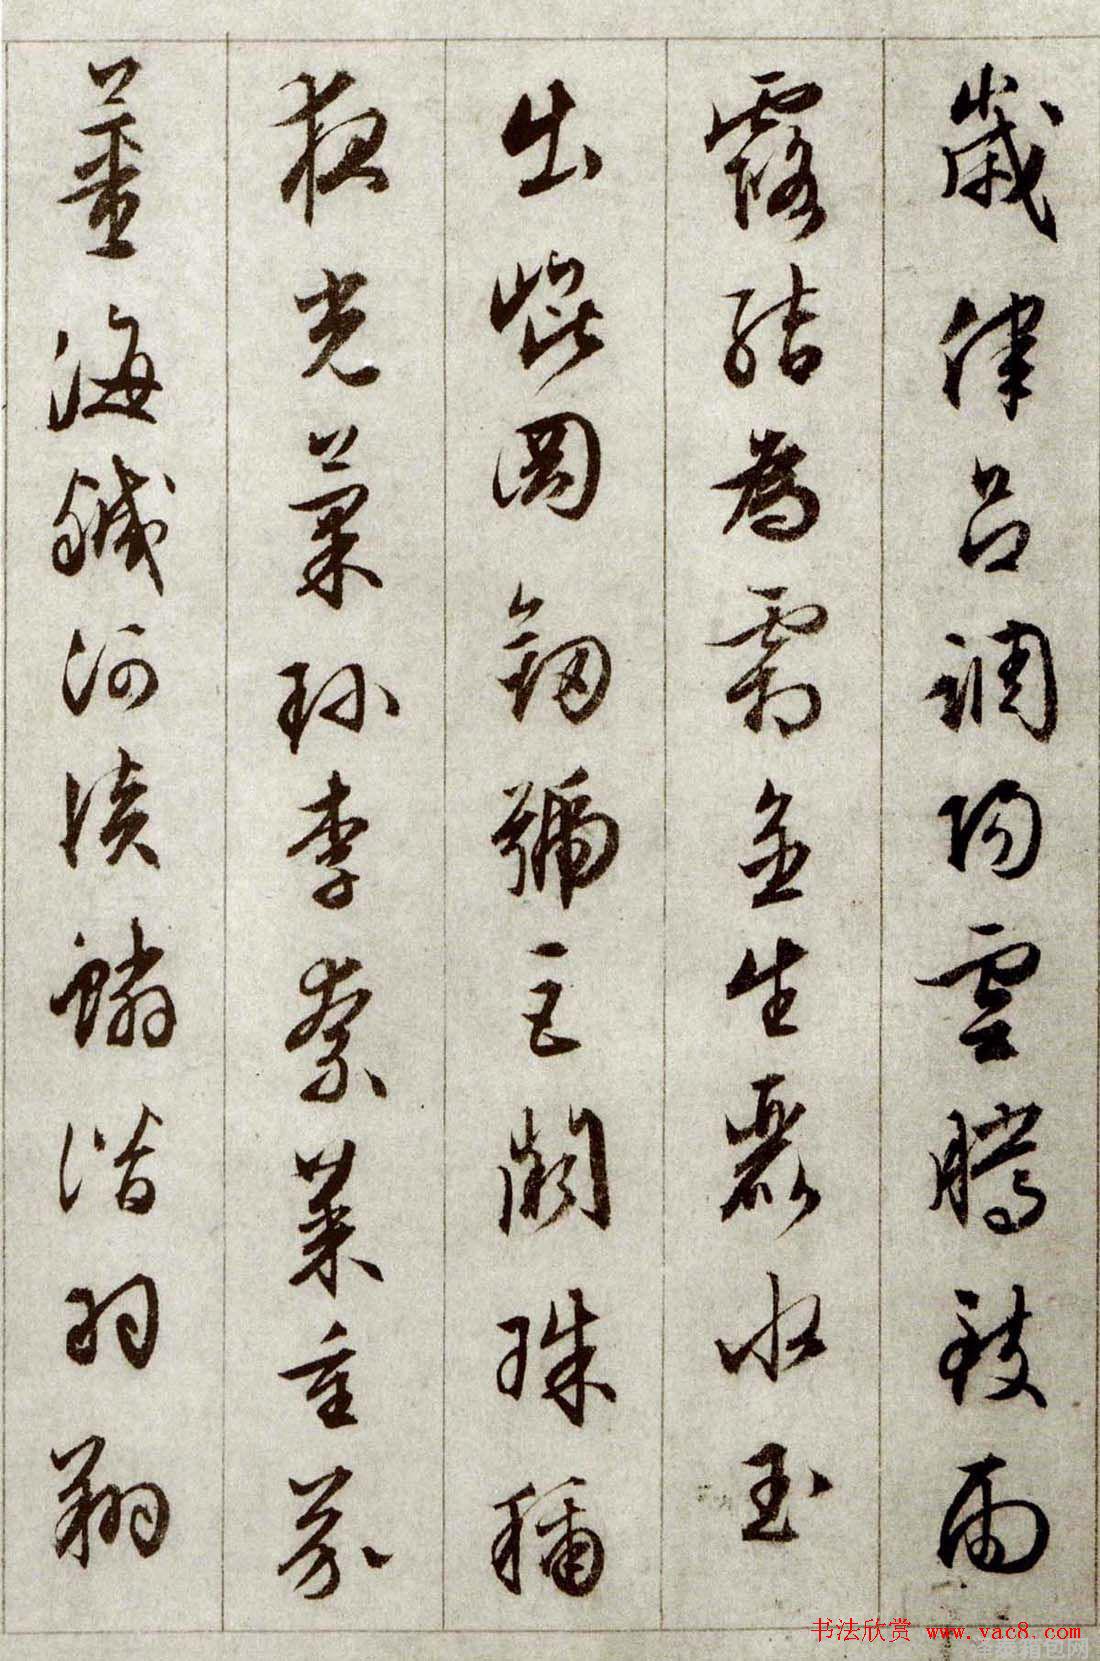 歲律呂調陽雲騰致雨
露結為霜金生麗水玉
出崐岡劒號巨闕珠稱
夜光菓珎李柰菜重芥
薑海鹹河淡鱗潛羽翔
书法欣赏 www.vac8.com